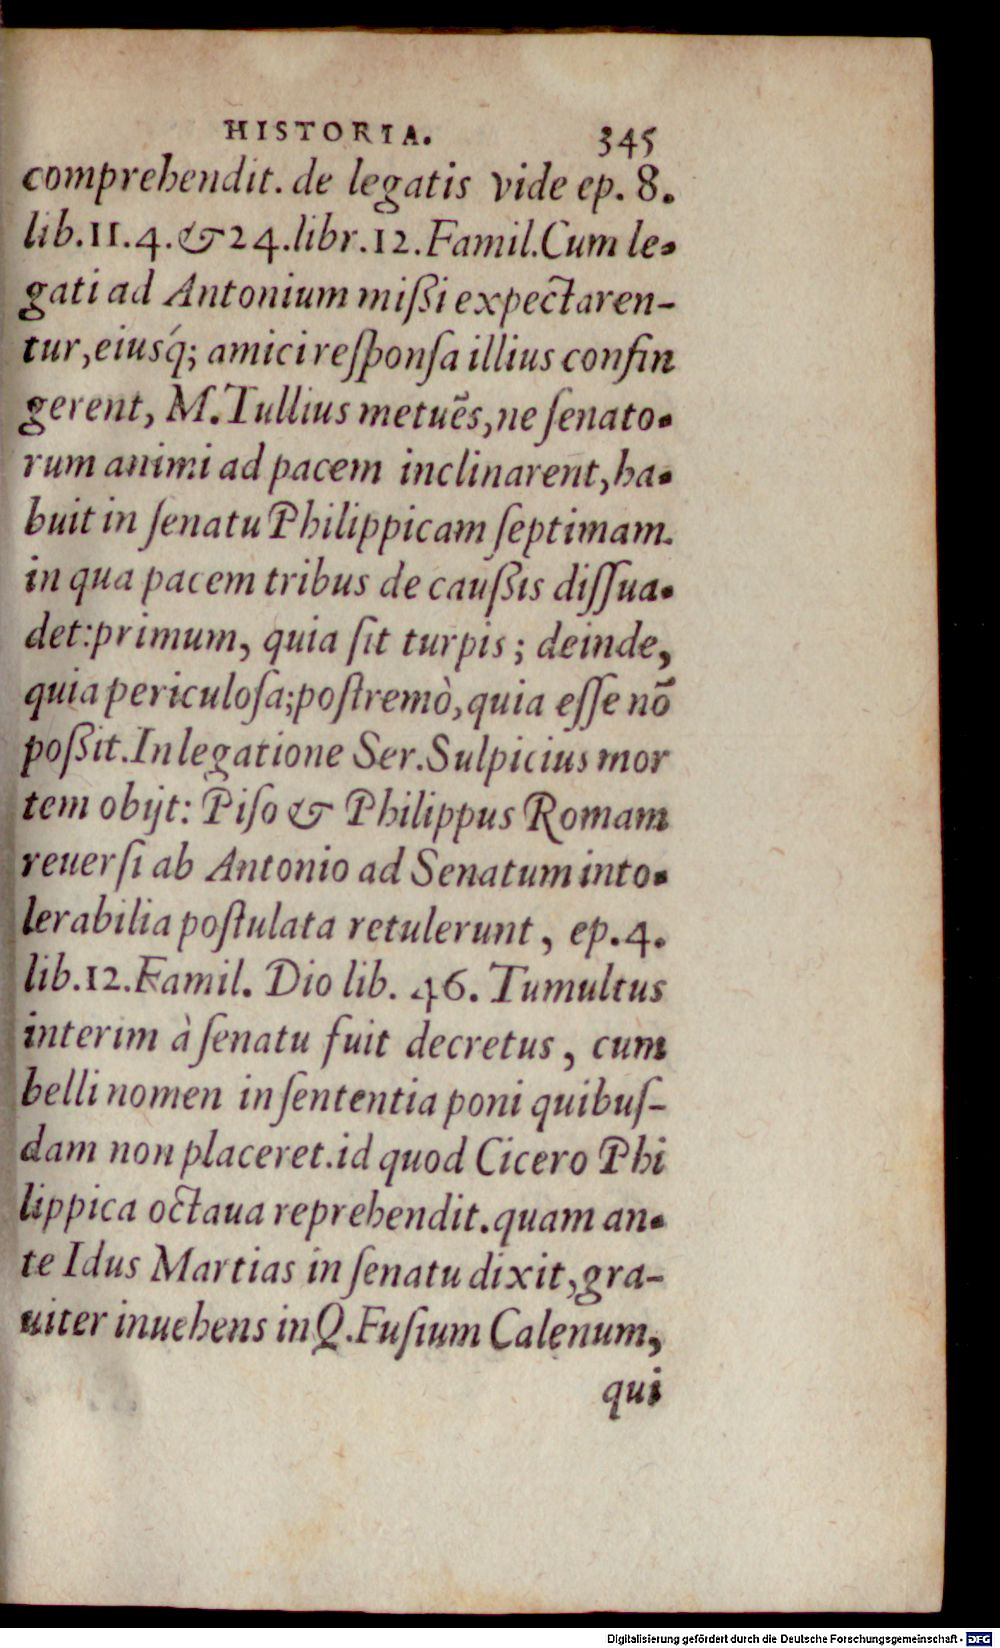 HISTORIA. 345
comprehendit. de legatis vide ep. 8.
lib.11.4.&24.libr.12.Famil.Cum le-
gati ad Antonium mißi expectaren-
tur,eiusq́; amici reſponſa illius confin
gerent, M.Tullius metuēs,ne ſenato-
rum animi ad pacem inclinarent,ha-
buit in ſenatu Philippicam ſeptimam.
in qua pacem tribus de caußis diſſua-
det:primum, quia ſit turpis ; deinde,
quia periculoſa;poſtremò,quia eſſe nō
poßit.In legatione Ser.Sulpicius mor
tem obijt: Piſo & Philippus Romam
reuerſi ab Antonio ad Senatum into-
lerabilia poſtulata retulerunt , ep.4.
lib.12.Famil. Dio lib. 46. Tumultus
interim à ſenatu fuit decretus , cum
belli nomen in ſententia poni quibuſ-
dam non placeret.id quod Cicero Phi
lippica octaua reprehendit.quam an-
te Idus Martias in ſenatu dixit,gra-
uiter inuehens in Q.Fuſium Calenum,
qui
Digitalisierung gefördert durch die Deutsche Forschungsgemeinschaft - DFG